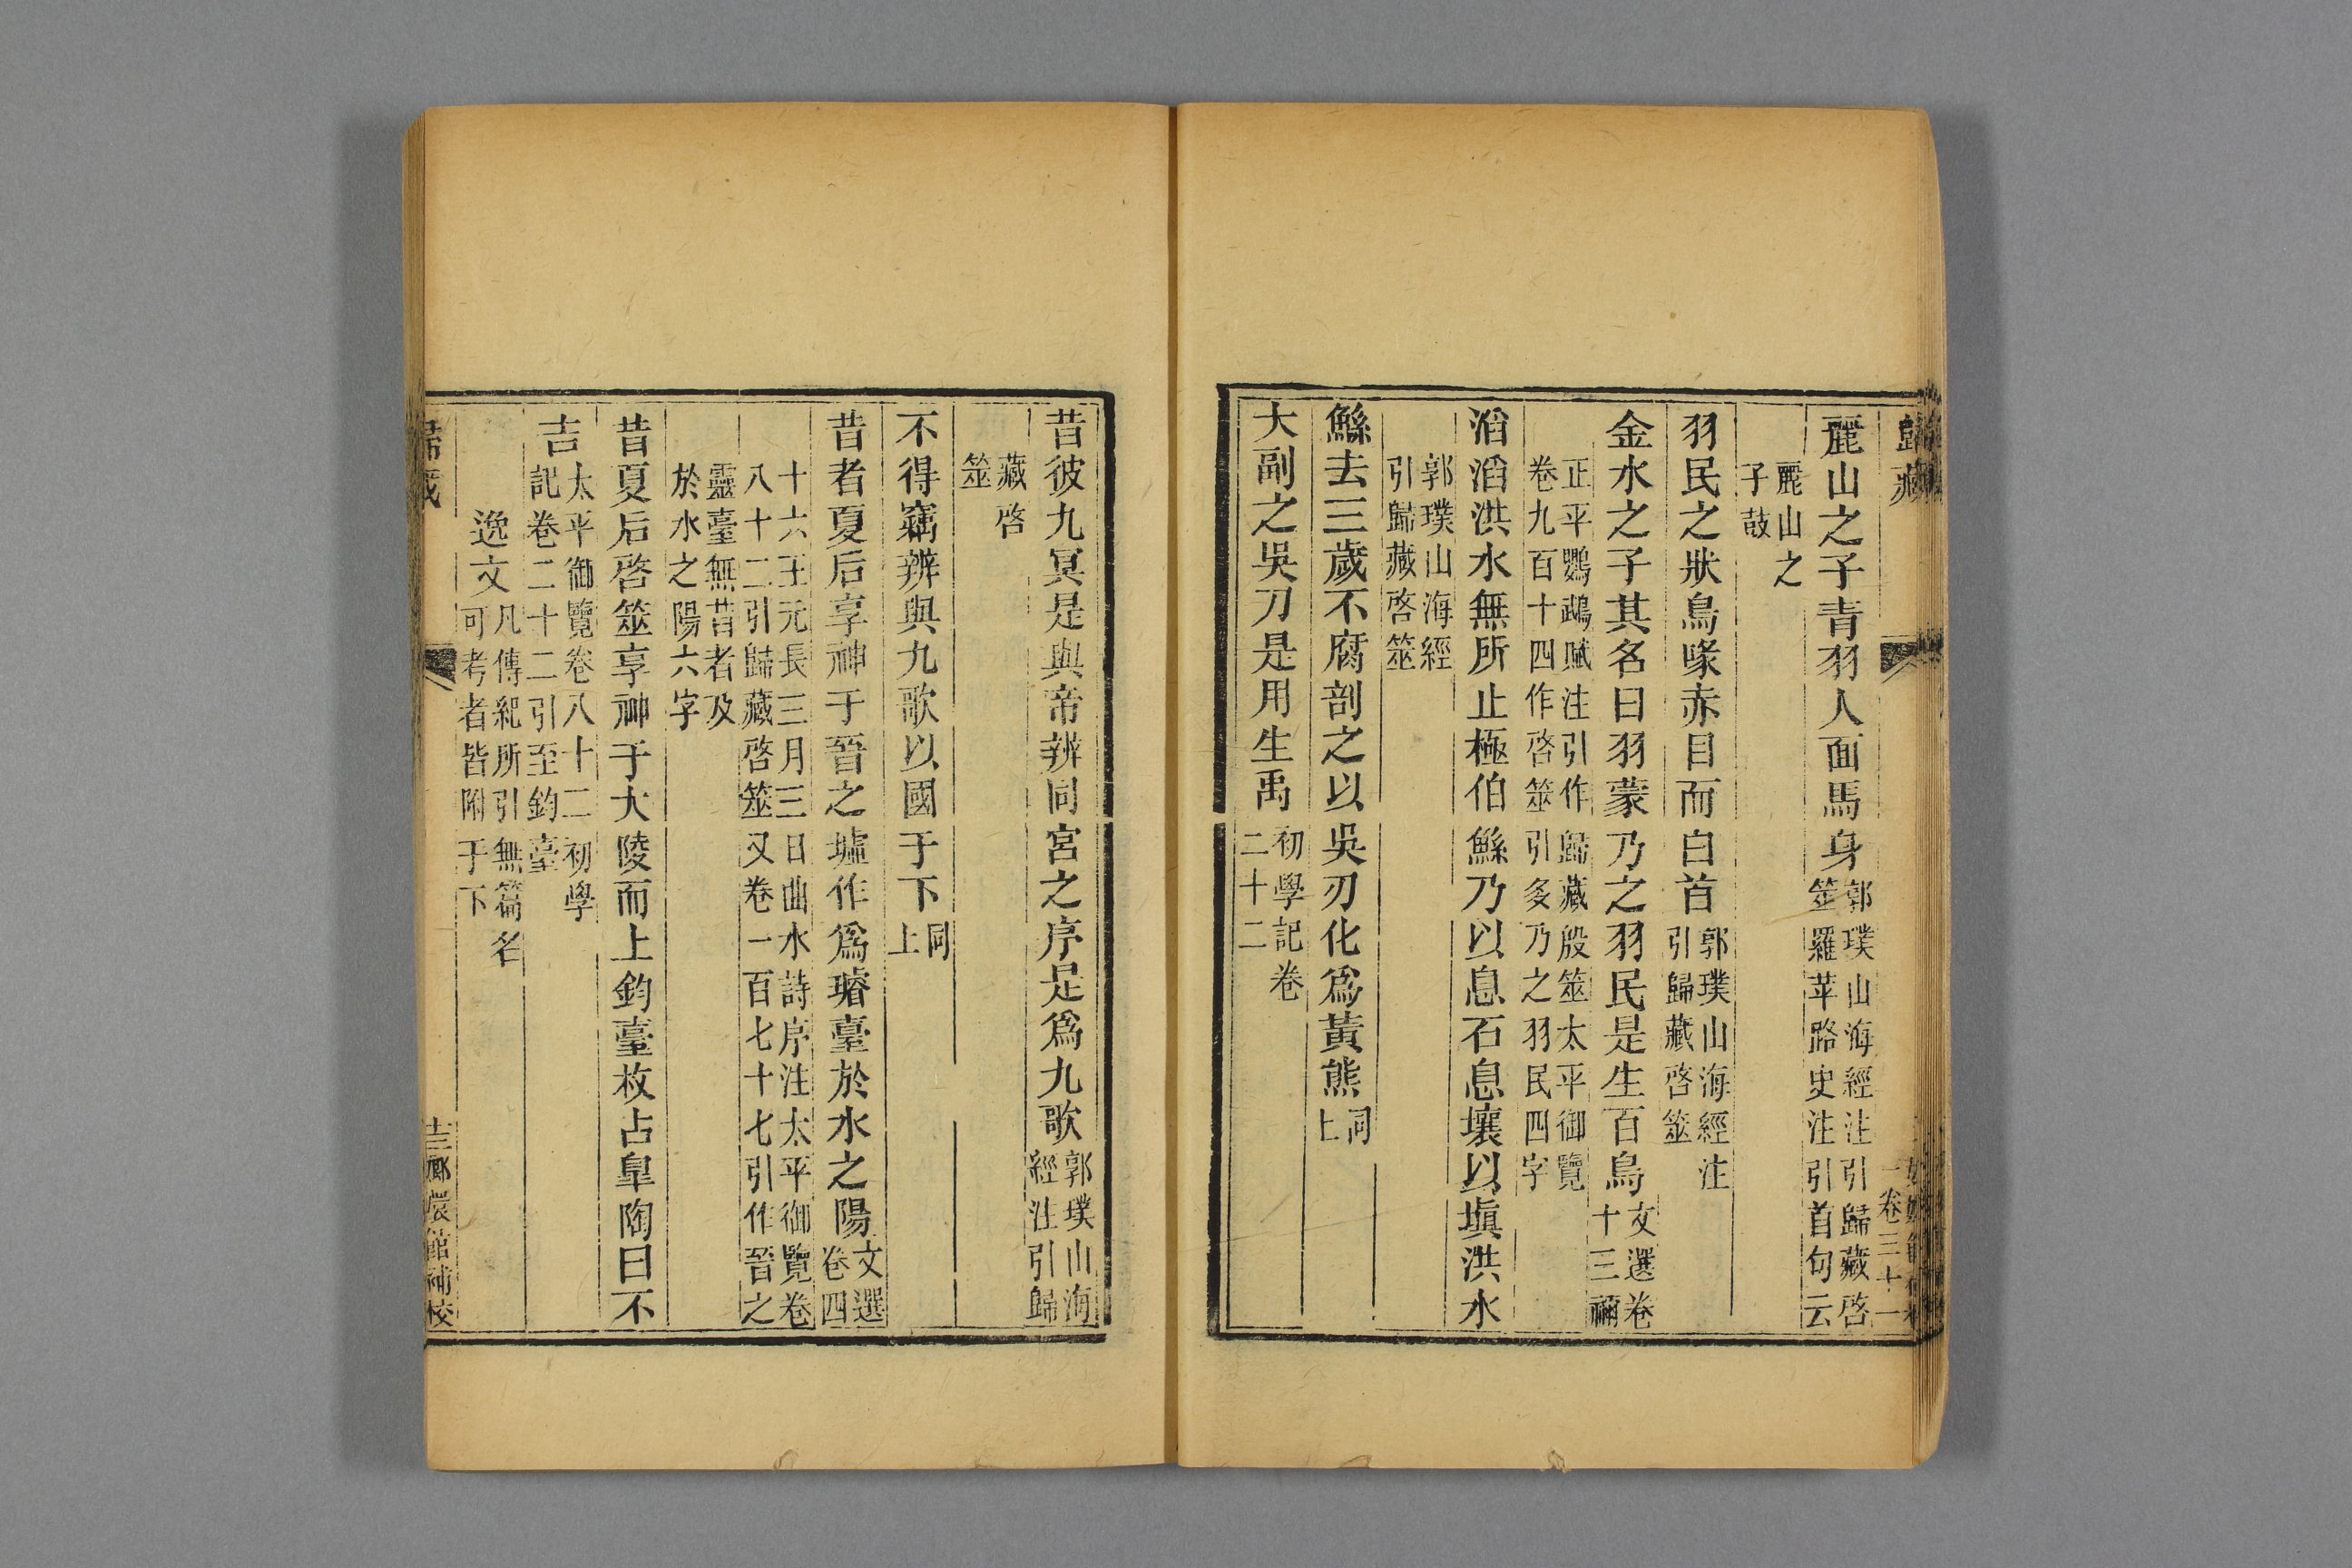 歸藏
卷三十一
麗山之子青羽人面馬身郭璞山海經注引歸藏啓
筮羅苹路史注引首句云
麗山之
子鼓
羽民之狀鳥喙赤目而白首郭璞山海經注
引歸藏啓筮
金水之子其名曰羽蒙乃之羽民是生百鳥文選卷
十三禰
正平鸚鵡賦注引作歸藏殷筮太平御覽
卷九百十四作啓筮引多乃之羽民四字
滔滔洪水無所止極伯鯀乃以息石息壤以塡洪水
郭璞山海經
引歸藏啓筮
鯀去三歲不腐剖之以吳刃化爲黃熊同
上
大副之吳刀是用生禹初學記卷
二十二
昔彼九冥是與帝辨同宮之序是爲九歌郭璞山海
經注引歸
藏啓
筮
不得竊辨與九歌以國于下同
上
昔者夏后享神于晉之墟作爲璿臺於水之陽文選
卷四
十六王元長三月三日曲水詩序注太平御覽卷
八十二引歸藏啓筮又卷一百七十七引作晉之
靈臺無昔者及
於水之陽六字
昔夏后啓筮享神于大陵而上鈞臺枚占臯陶曰不
吉太平御覽卷八十二初學
記卷二十二引至鈞臺
逸文凡傳紀所引無篇名
可考者皆附于下
歸藏
十三 嫏嬛館補校